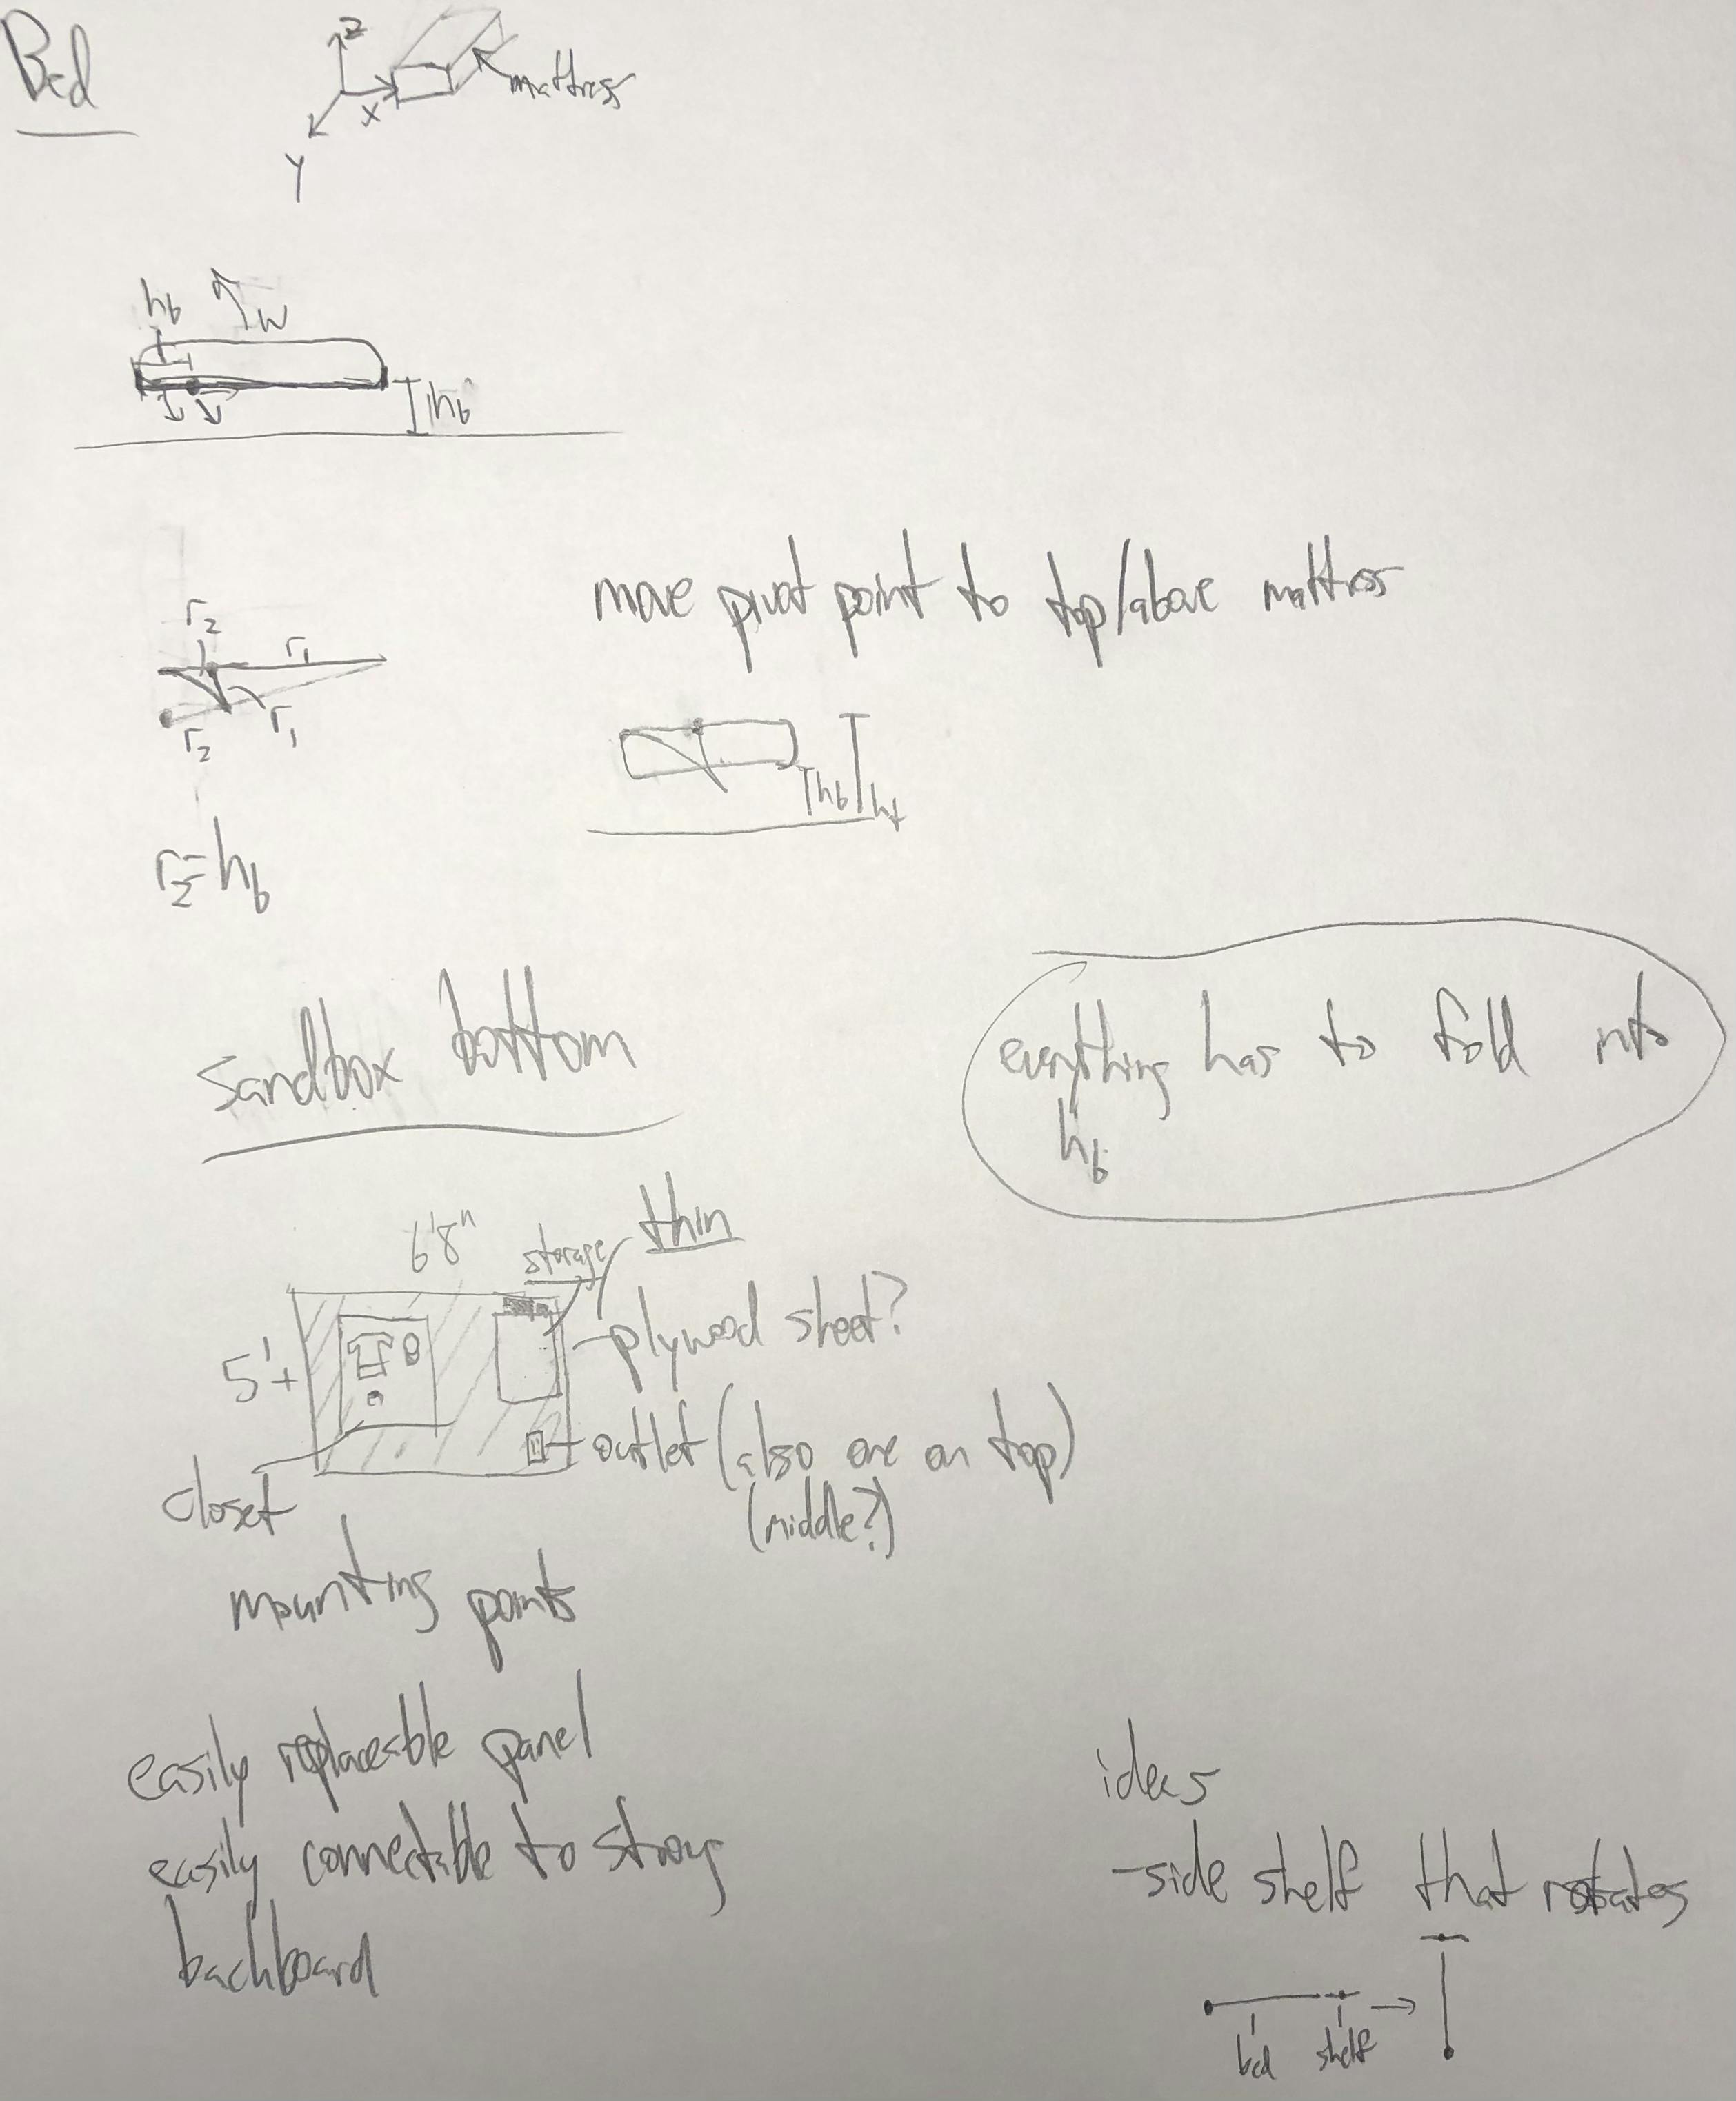 Bed
Z
X
Y
mattress
hb
w
hb
r2
r1
r2
r1
r2=hb
move pivot point to top/above mattress
hb
ht
everything has to fold into
hb
sandbox bottom
6'8"
storage
thin
5'+
-plywood sheet?
outlet (also one on top)
(middle?)
closet
mounting points
easily replaceable panel
easily connectable to strong
backboard
ideas
-side shelf that rotates
bed
shelf